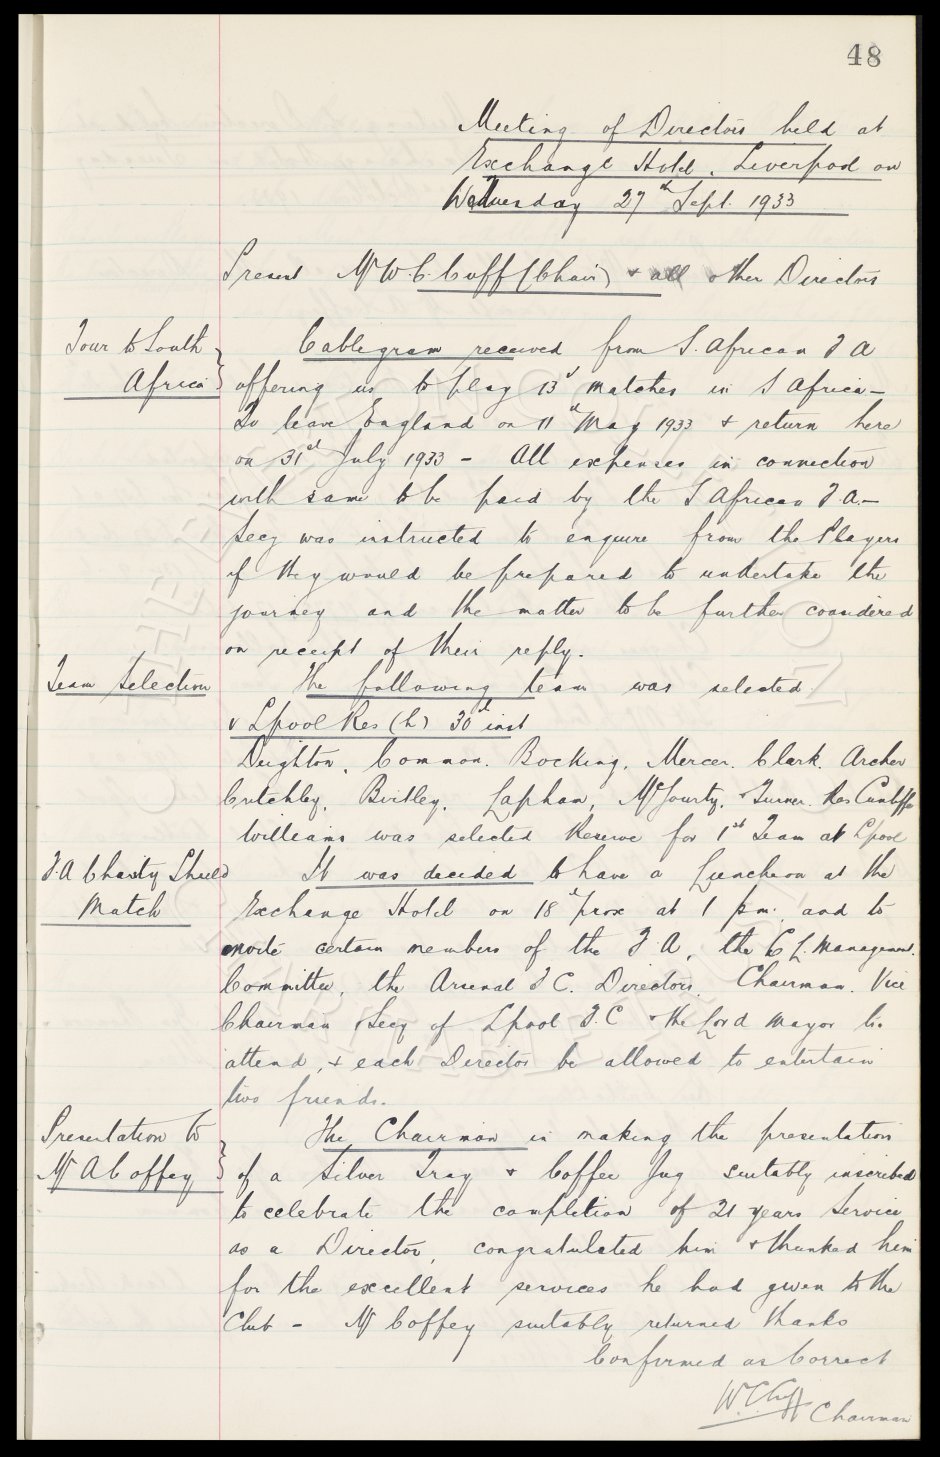 48
Meeting of Directors held at
Exchange Hotel, Liverpool on
Wednesday 27th Sept. 1933
Present Mr W.C. Cuff (Chair) & all other Directors
Tour to South
Africa
Cablegram received from S. African F A
offering us to play 13 matches in S Africa –
To leave England on 11th May 1933 & return here
on 31st July 1933 – All expenses in connection
with same to be paid by the S African F.A. –
Secy was instructed to enquire from the Players
if they would be prepared to undertake the
journey and the matter to be further considered
on receipt of their reply.
Team Selection
The following team was selected.
v Lpool Res (h) 30th inst
Deighton, Common. Bocking, Mercer. Clark. Archer
Critchley, Birtley, Lapham, McGourty, & Turner. Res Cunliffe
Williams was selected Reserve for 1st Team at Lpool
F.A Charity Shield
Match
It was decided to have a Luncheon at the
Exchange Hotel on 18th prox at 1 pm. and to
invite certain members of the F.A, the C.L. Management.
Committee, the Arsenal F C. Directors, Chairman. Vice
Chairman & Secy of Lpool F.C & the Lord Mayor to
attend, & each Director be allowed to entertain
two friends.
Presentation to
Mr A Coffey
The Chairman in making the presentation
of a Silver Tray & Coffee Jug suitably inscribed
to celebrate the completion of 21 years Service
as a Director, congratulated him & thanked him
for the excellent services he had given to the
Club – Mr Coffey suitably returned thanks
Confirmed as Correct
W.C. Cuff
Chairman